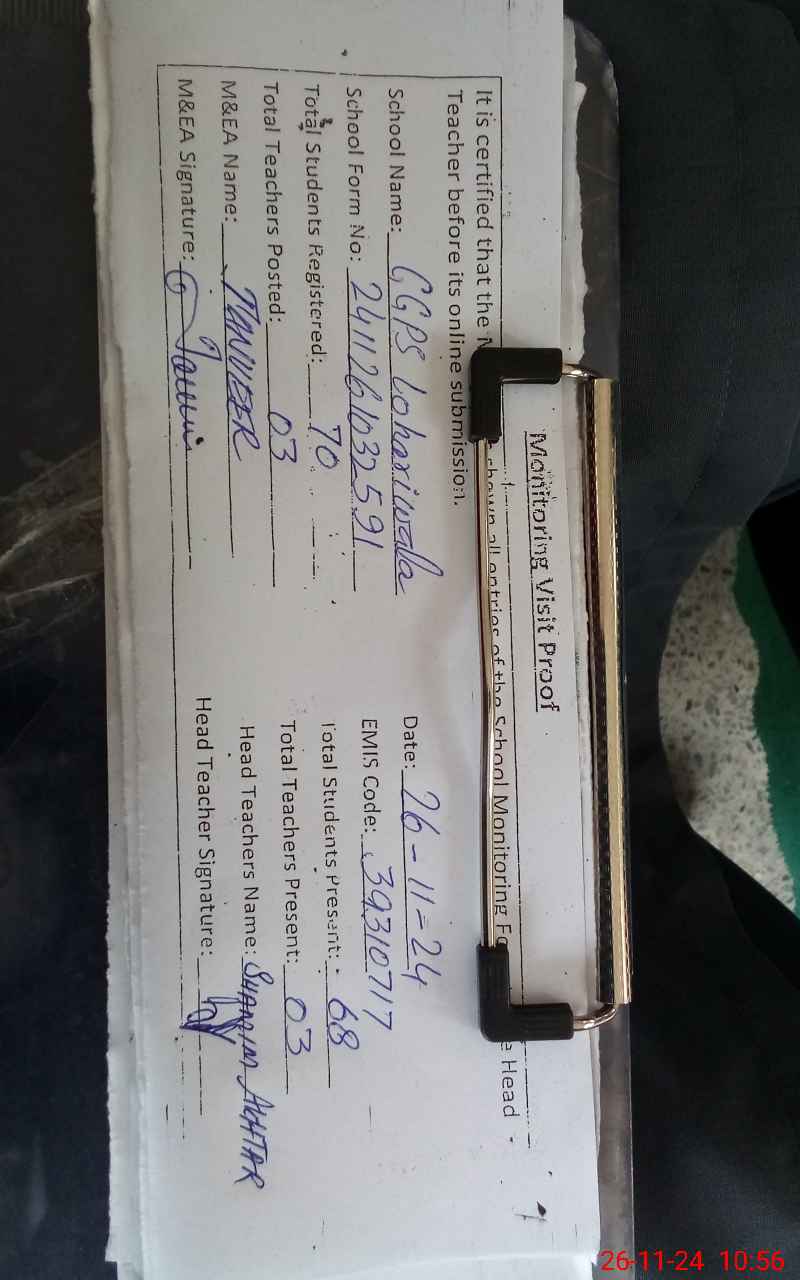 Monitoring Visit Proof
It is certified that the shown all entries of the School Monitoring Head
Teacher before its online submission.
School Name: GGPS Lohariwala Date: 26-11-24
School Form No: 2411261032591 EMIS Code: 39310717
Total Students Registered: 70 Total Students Present: 68
Total Teachers Posted: 03 Total Teachers Present: 03
M&EA Name: TANVEER Head Teachers Name: SHAMIM AKHTAR
M&EA Signature: Head Teacher Signature:
26-11-24 10:56